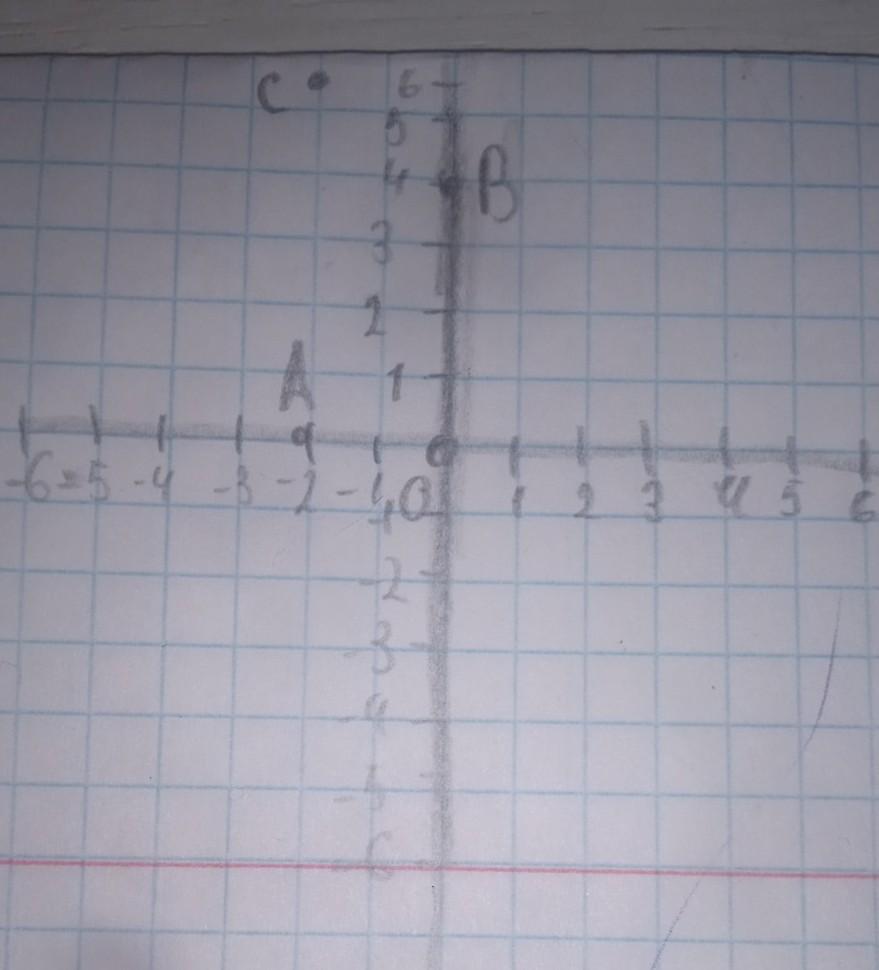 C 6
5
4 B
3
2
A 1
-6 -5 -4 -3 -2 -1 0 1 2 3 4 5 6
-1
-2
-3
-4
-5
-6